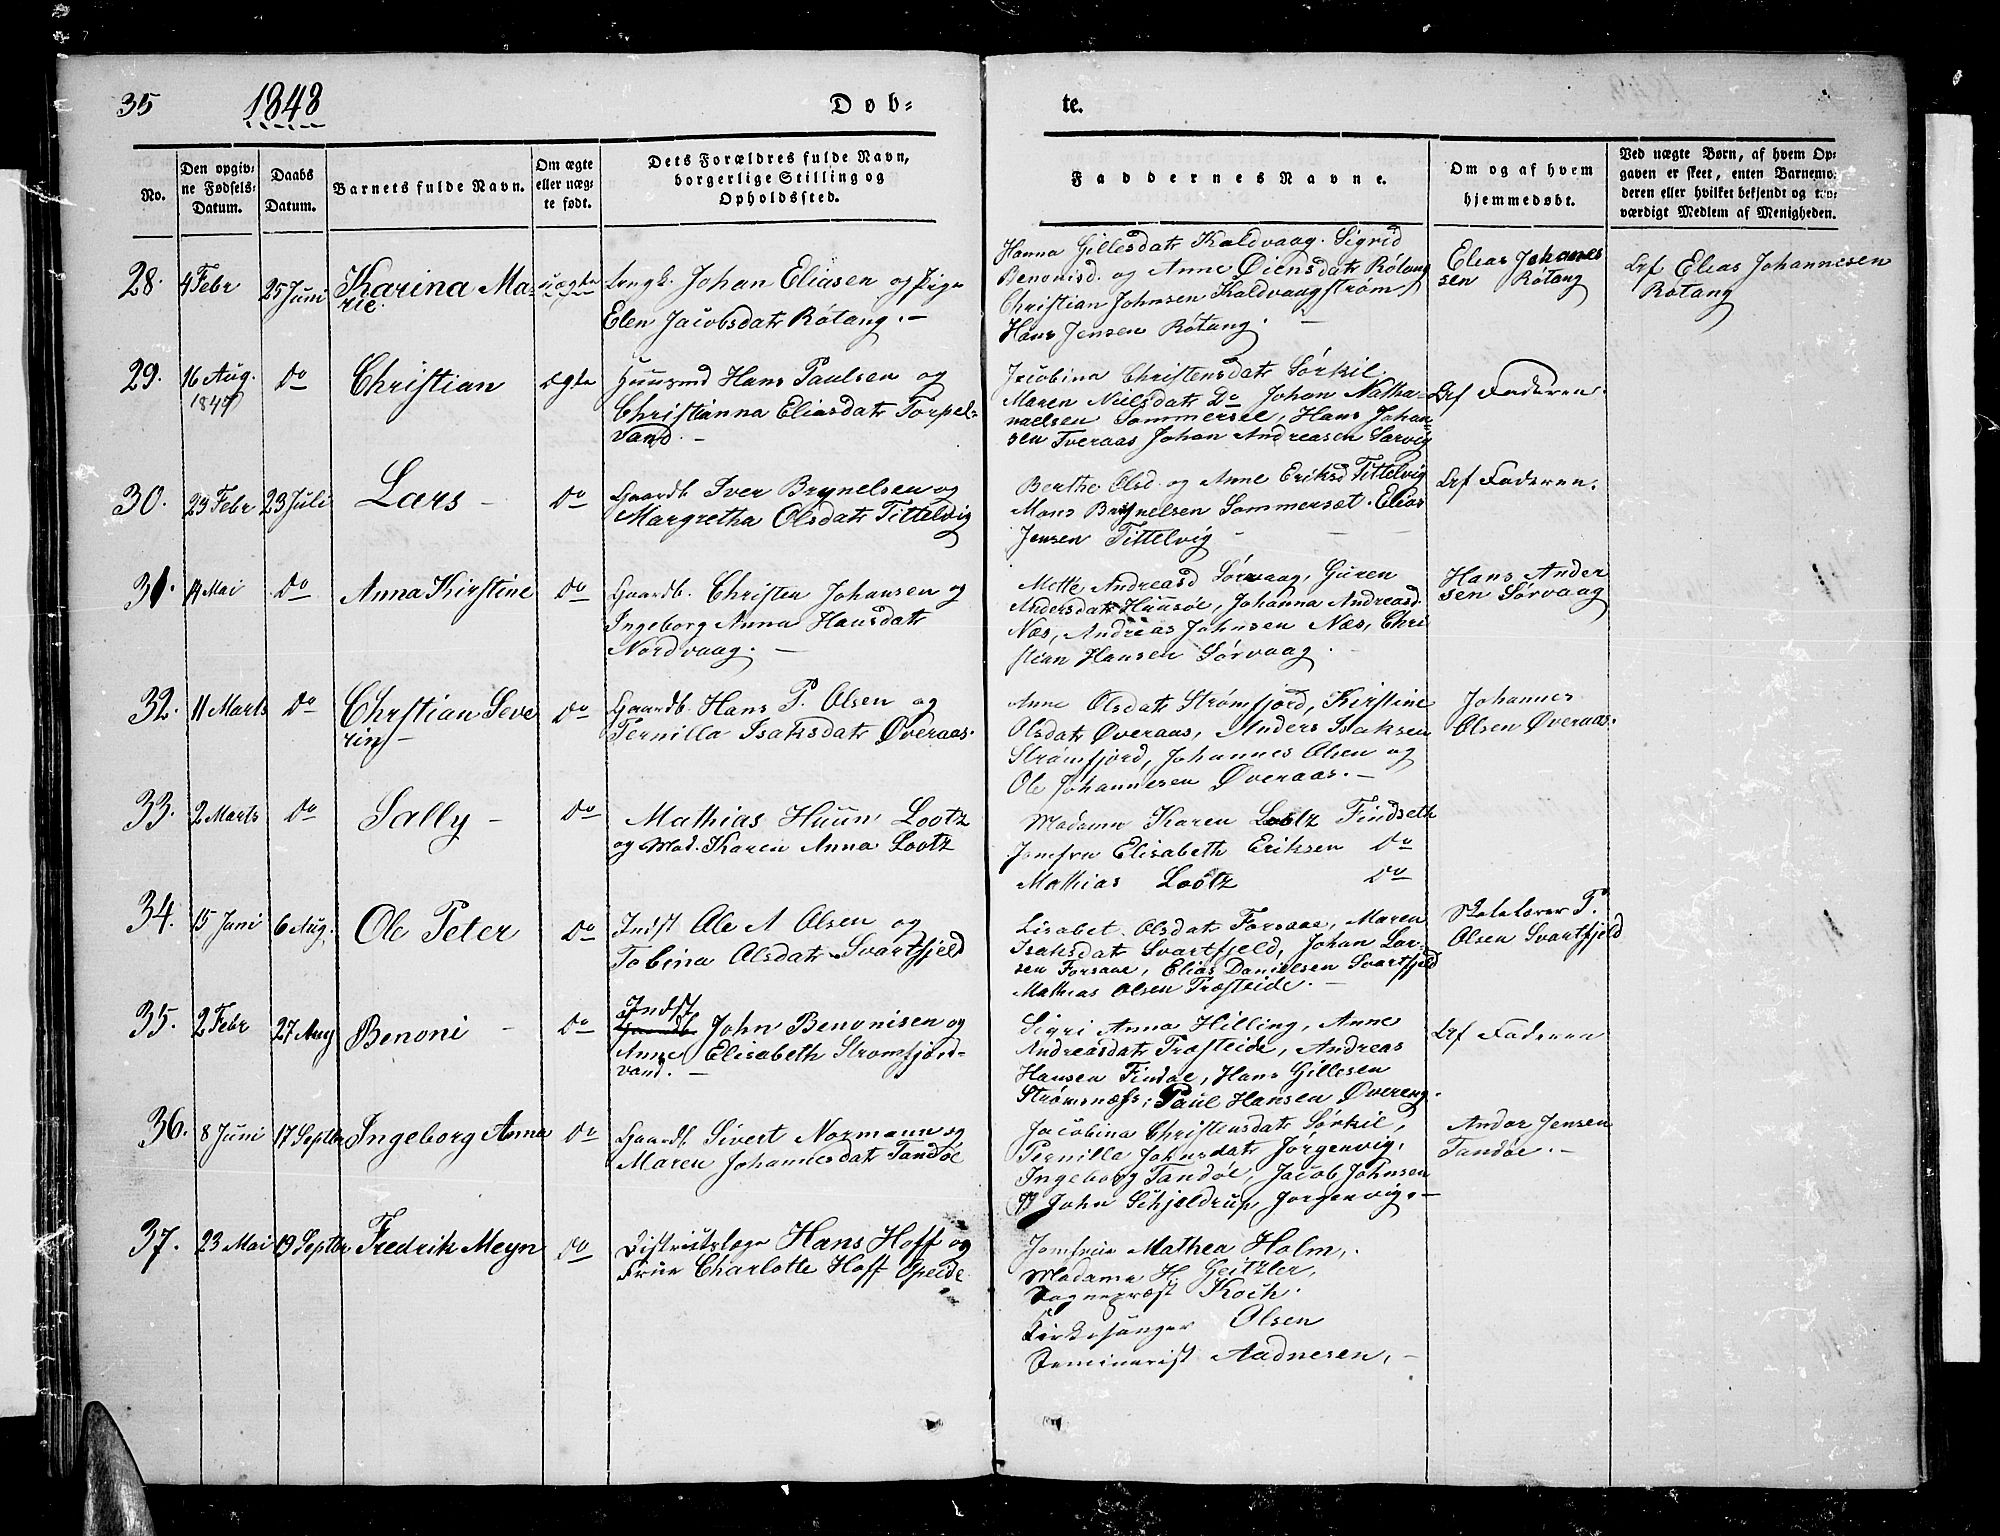 35 1848 Døb-
te.
No.
Den opgiv-
ne Fødsels-
Datum.
Daabs
Datum.
Barnets fulde Navn.
Om ægte
eller uæg-
te født.
Dets Forældres fulde Navn,
borgerlige Stilling og
Opholdssted.
Faddernes Navne.
Om og af hvem
hjemmedøbt.
Ved uægte Børn, af hvem Op-
gaven er skeet, enten Barnemo-
deren eller hvilket bekjendt og tro-
værdigt Medlem af Menigheden.
28. 4 Febr 25 Juni Karina Ma-
rie.
uægte
Ungk. Johan Eliasen og Pige
Elen Jacobsdatr Røtang. -
Hanna Gillesdatr Kaldvaag. Sigrid
Benonisd. og Anne Diensdatr Røtang
Christian Johnsen Kaldvaagstrøm
Hans Jensen Røtang. -
Elias Johanes
sen Røtang
Elias Johannesen
Røtang
29. 16 Aug.
1847
do Christian ægte
Huusmd Hans Paulsen og
Christianna Eliasdatr Torpel-
vand. -
Jacobina Christensdatr Sørkil.
Maren Nielsdatr Do Johan Natha-
naelsen Sommersel, Hans Johan-
sen Tveraas Johan Andreasen Sørvig
af Faderen.
30. 23 Febr 23 Juli Lars - do
Gaardb. Iver Brynelsen og
Margretha Olsdatr Tittelvig
Berthe Olsd. og Anne Eriksd Tittelvig
Mons Brynelsen Sommerset. Elias
Jensen Tittelvig -
af Faderen.
31. 14 Mai do Anna Kirstine do
Gaardb. Christen Johansen og
Ingeborg Anna Hansdatr
Nordvaag. -
Mette Andreasd Sørvaag, Guren
Andersdatr Huusøe, Johanna Andreasd
Næs, Andreas Johnsen Næs, Chri
stian Hansen Sørvaag.
Hans Ander
sen Sørvaag
32. 11 Marts do Chrstian Seve
rin -
do
Gaardb. Hans P. Olsen og
Pernilla Isaksdatr Øveraas.
Anne Olsdatr Strømfjord, Kirstine
Olsdatr Øveraas, Anders Isaksen
Strømfjord, Johannes Olsen og
Ole Johannesen Øveraas. -
Johannes
Olsen Øveraas.
33. 2 Marts do Sally - do
Mathias Huun Lootz
og Mad. Karen Anna Lootz
Madame Karen Lootz Findseth
Jomfru Elisabeth Eriksen do
Mathias Lootz do
34. 15 Juni 6 Aug. Ole Peter do
Indst Ole A Olsen og
Tobina Olsdatr Svartfjeld
Lisabet Olsdatr Forsaae, Maren
Isaksdatr Svartfjeld, Johan Lar-
sen Forsaae, Elias Danielsen Svartfjeld
Mathias Olsen Træsteide. -
Skolelærer P.
Olsen Svartfjeld
35. 2 Febr 27 Aug Benoni - do
Indst
Gaardb John Benonisen og
Anne Elisabeth Strømfjord-
vand. -
Sigri Anna Hilling, Anne
Andreasdatr Træsteide, Andreas
Hansen Findøe, Hans Gillesen
Strømsnæss, Paul Hansen Øvereng.
af Faderen
36. 8 Juni 17 Septbr Ingeborg Anna do
Gaardb Sivert Normann og
Maren Johannesdatr Tandøe
Jacobina Christensdatr Sørkil,
Pernilla Johnsdatr Jørgenvig,
Ingeborg Tandøe, Jacob Johnsen
og John Schjeldrup, Jørgenvig. -
Andor Jensen
Tandøe. -
37. 23 Mai 19 Septbr Fredrik Meyn do
Districtslæge Hans Hoff og
Frue Charlotte Hoff Opeide
Jomfrue Mathea Holm,
Madame H. Geitzler,
Sognepræst Koch.
Kirkesanger Olsen
Seminarist Aadnesen. -